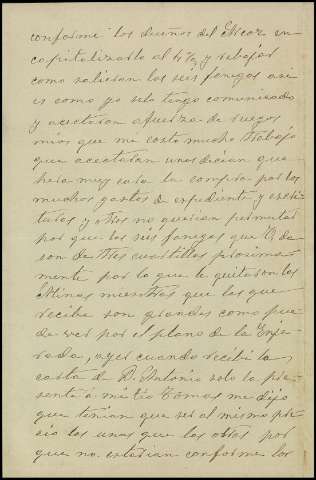 conforme los dueños del Alcor en
capitalizarlo al 4 % y rebajar
como salieron las seis fanegas asi
es como yo selo tengo comunicado
y acectaron afuerza de ruegos
mios que me costo mucho trabajo
que acectaran unos decian que
hera muy cara la compra por los
muchos gastos de espediente y escri
turas y otros no querian permutar
por que las seis fanegas que V. da
son de tres cuartillas procsima
mente por lo que le quitaron las
Minas mientras que las que
recibe son grandes como pue
de ver por el plano de la Enje
rada, ayer cuando recibi la
carta de D. Antonio solo la pre
senté a mi tio Tomas me dijo
que tenian que ser al mismo pre
cio las unas que las otras por
que no estarian conforme los